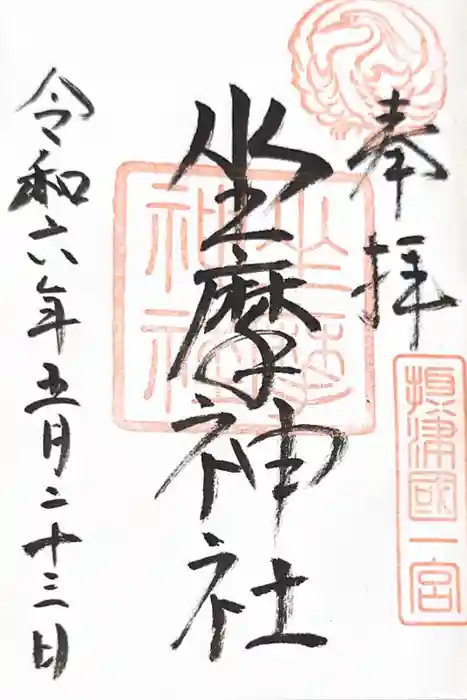 奉拝
摂津國一宮
坐摩神社
坐摩神社
令和六年五月二十三日